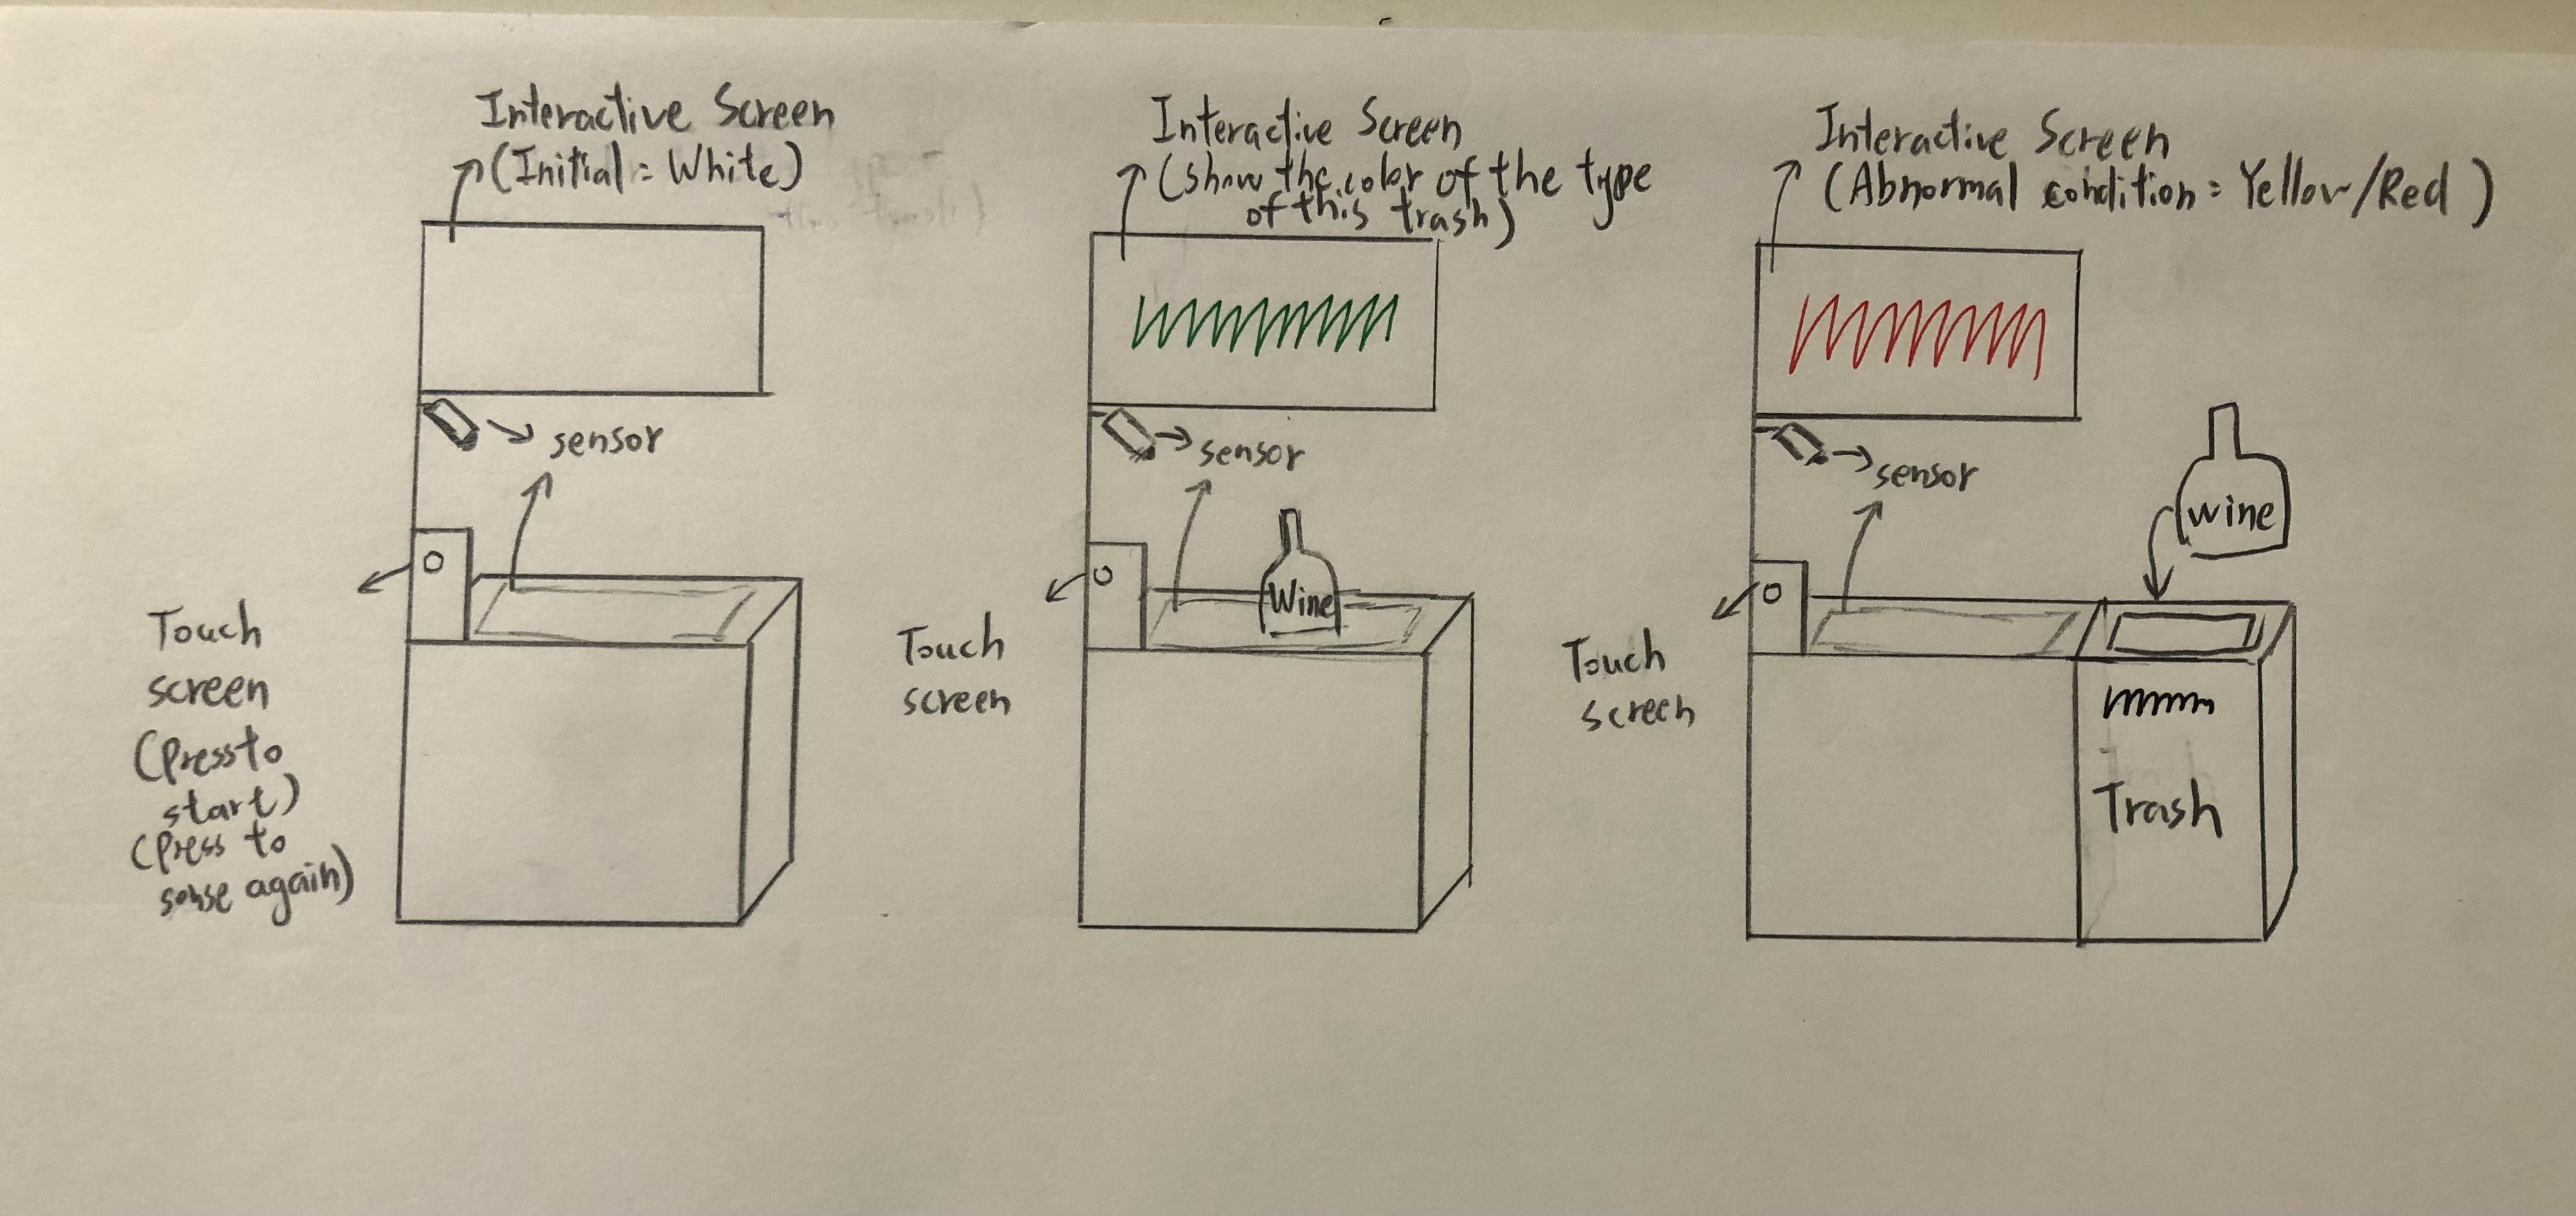 Interactive Screen
(Initial = White)
sensor
Touch
screen
(Press to
start)
(Press to
sense again)
Interactive Screen
(show the color of the type
of this trash)
sensor
Wine
Touch
screen
Interactive Screen
(Abnormal condition = Yellow/Red)
sensor
wine
Touch
screen
Trash